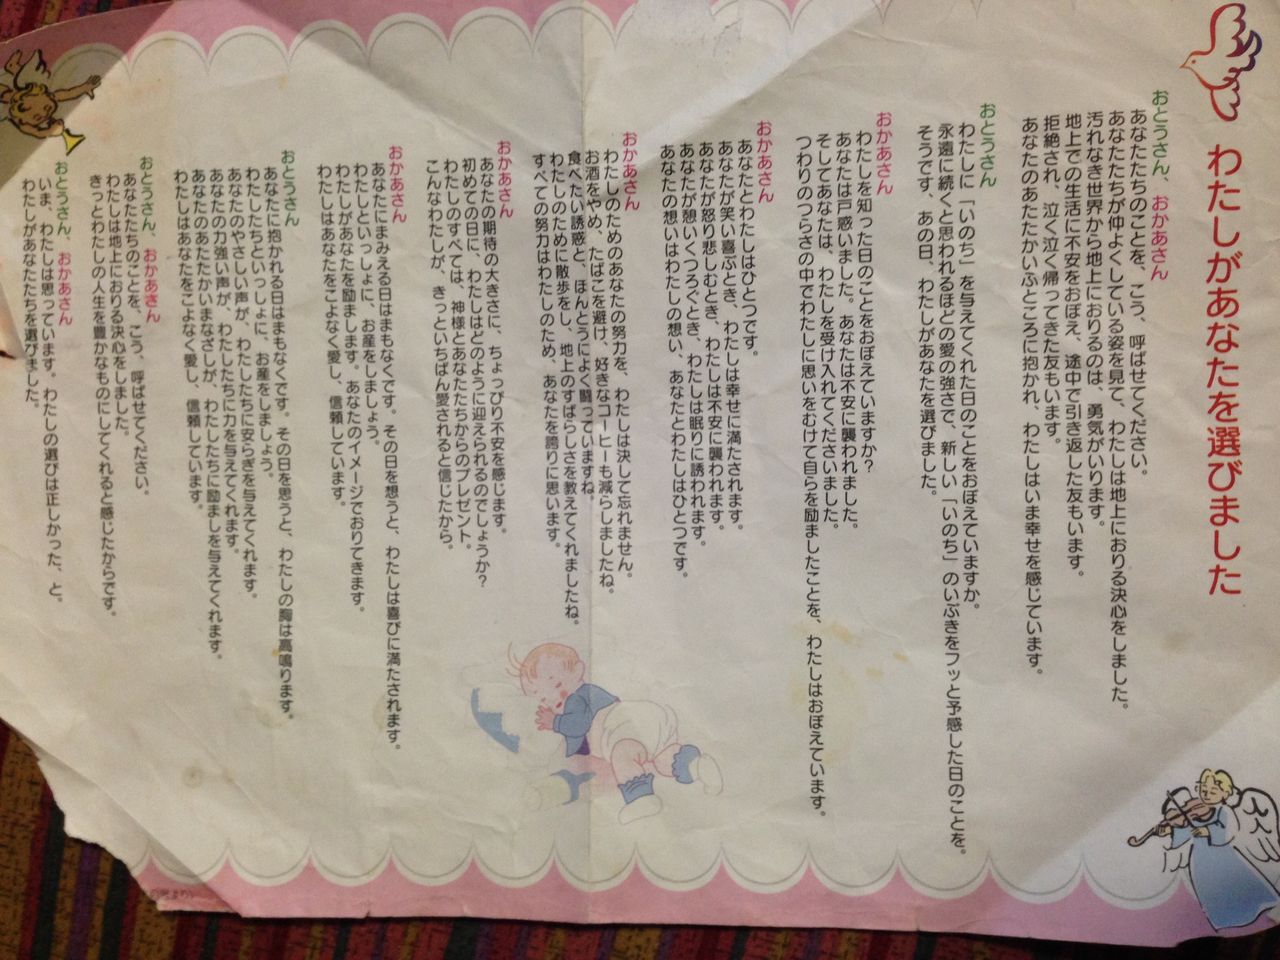 わたしがあなたを選びました
おとうさん、おかあさん
あなたたちのことを、こう、呼ばせてください。
あなたたちが仲よくしている姿を見て、わたしは地上におりる決心をしました。
汚れなき世界から地上におりるのは、勇気がいります。
地上での生活に不安をおぼえ、途中で引き返した友もいます。
拒絶され、泣く泣く帰ってきた友もいます。
あなたのあたたかいふところに抱かれ、わたしはいま幸せを感じています。
おとうさん
わたしに「いのち」を与えてくれた日のことをおぼえていますか。
永遠に続くと思われるほどの愛の強さで、新しい「いのち」のいぶきをフッと予感した日のことを。
そうです、あの日、わたしがあなたを選びました。
おかあさん
わたしを知った日のことをおぼえていますか？
あなたは戸惑いました。あなたは不安に襲われました。
そしてあなたは、わたしを受け入れてくださいました。
つわりのつらさの中でわたしに思いをむけて自らを励ましたことを、わたしはおぼえています。
おかあさん
あなたとわたしはひとつです。
あなたが笑い喜ぶとき、わたしは幸せに満たされます。
あなたが怒り悲しむとき、わたしは不安に襲われます。
あなたが憩いくつろぐとき、わたしは眠りに誘われます。
あなたの想いはわたしの想い、あなたとわたしはひとつです。
おかあさん
わたしのためのあなたの努力を、わたしは決して忘れません。
お酒をやめ、たばこを避け、好きなコーヒーも減らしましたね。
食べたい誘惑と、ほんとうによく闘っていますね。
わたしのために散歩をし、地上のすばらしさを教えてくれましたね。
すべての努力はわたしのため、あなたを誇りに思います。
おかあさん
あなたの期待の大きさに、ちょっぴり不安を感じます。
初めての日に、わたしはどのように迎えられるのでしょうか？
わたしのすべては、神様とあなたたちからのプレゼント。
こんなわたしが、きっといちばん愛されると信じたから。
おかあさん
あなたにまみえる日はまもなくです。その日を想うと、わたしは喜びに満たされます。
わたしといっしょに、お産をしましょう。
わたしがあなたを励まします。あなたのイメージでおりてきます。
わたしはあなたをこよなく愛し、信頼しています。
おとうさん
あなたに抱かれる日はまもなくです。その日を思うと、わたしの胸は高鳴ります。
わたしたちといっしょに、お産をしましょう。
あなたのやさしい声が、わたしたちに安らぎを与えてくれます。
あなたの力強い声が、わたしたちに力を与えてくれます。
あなたのあたたかいまなざしが、わたしたちに励ましを与えてくれます。
わたしはあなたをこよなく愛し、信頼しています。
おとうさん、おかあさん
あなたたちのことを、こう、呼ばせてください。
わたしは地上におりる決心をしました。
きっとわたしの人生を豊かなものにしてくれると感じたからです。
おとうさん、おかあさん
いま、わたしは思っています。わたしの選びは正しかった、と。
わたしがあなたたちを選びました。